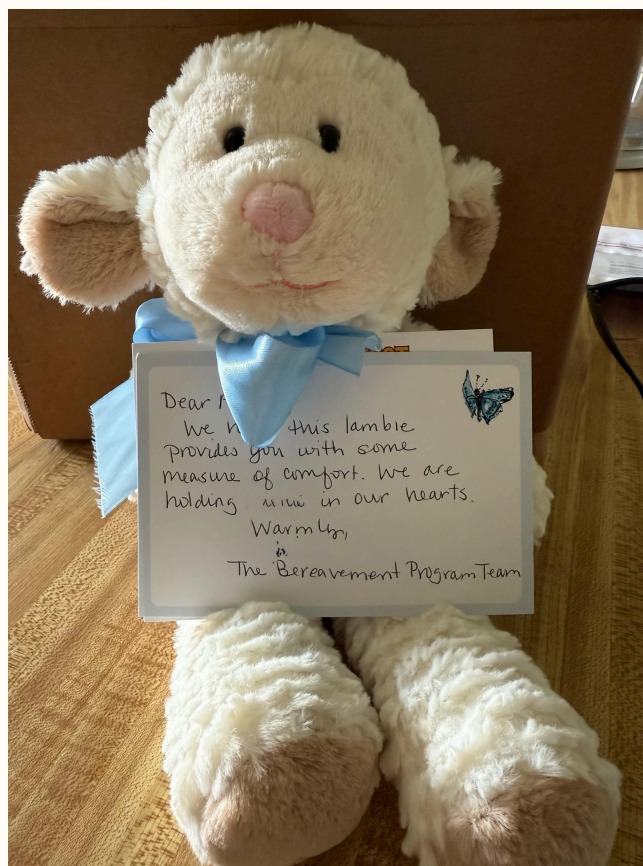 Dear
We this lambie
provides you with some
measure of comfort. We are
holding in our hearts.
Warmly,
The Bereavement Program Team